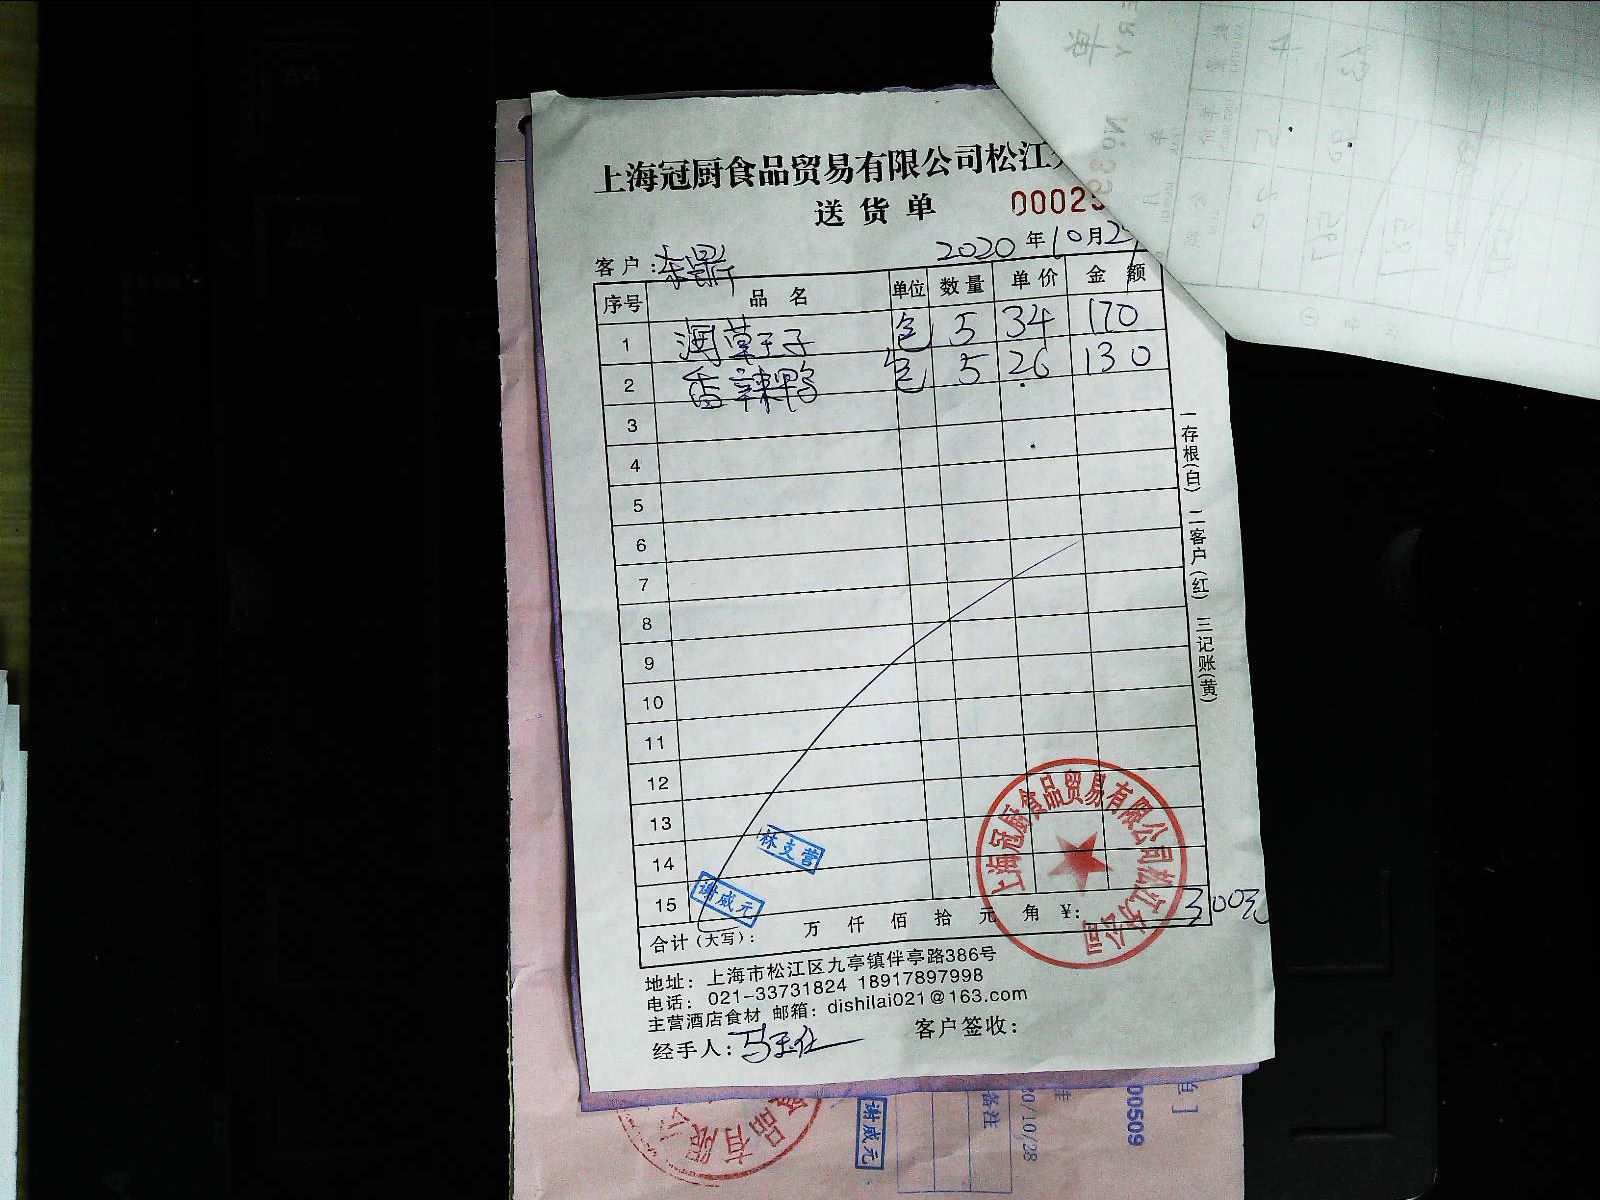 上海冠厨食品贸易有限公司松江
送货单 00025
2020年10月2
客户:
序号 品名 单位 数量 单价 金额
1 包 5 34 170
2 香辣鸭 包 5 26 130
3
4
5
6
7
8
9
10
11
12
13
14
15
林支营
谢咸元
合计(大写): 万 仟 佰 拾 元 角 ¥: 300元
上海冠厨食品贸易有限公司松江分公司
地址: 上海市松江区九亭镇伴亭路386号
电话: 021-33731824 18917897998
主营酒店食材 邮箱: dishilai021@163.com
经手人: 客户签收:
一存根(白) 二客户(红) 三记账(黄)
谢咸元
备注
20/10/28
00509
食品有限公